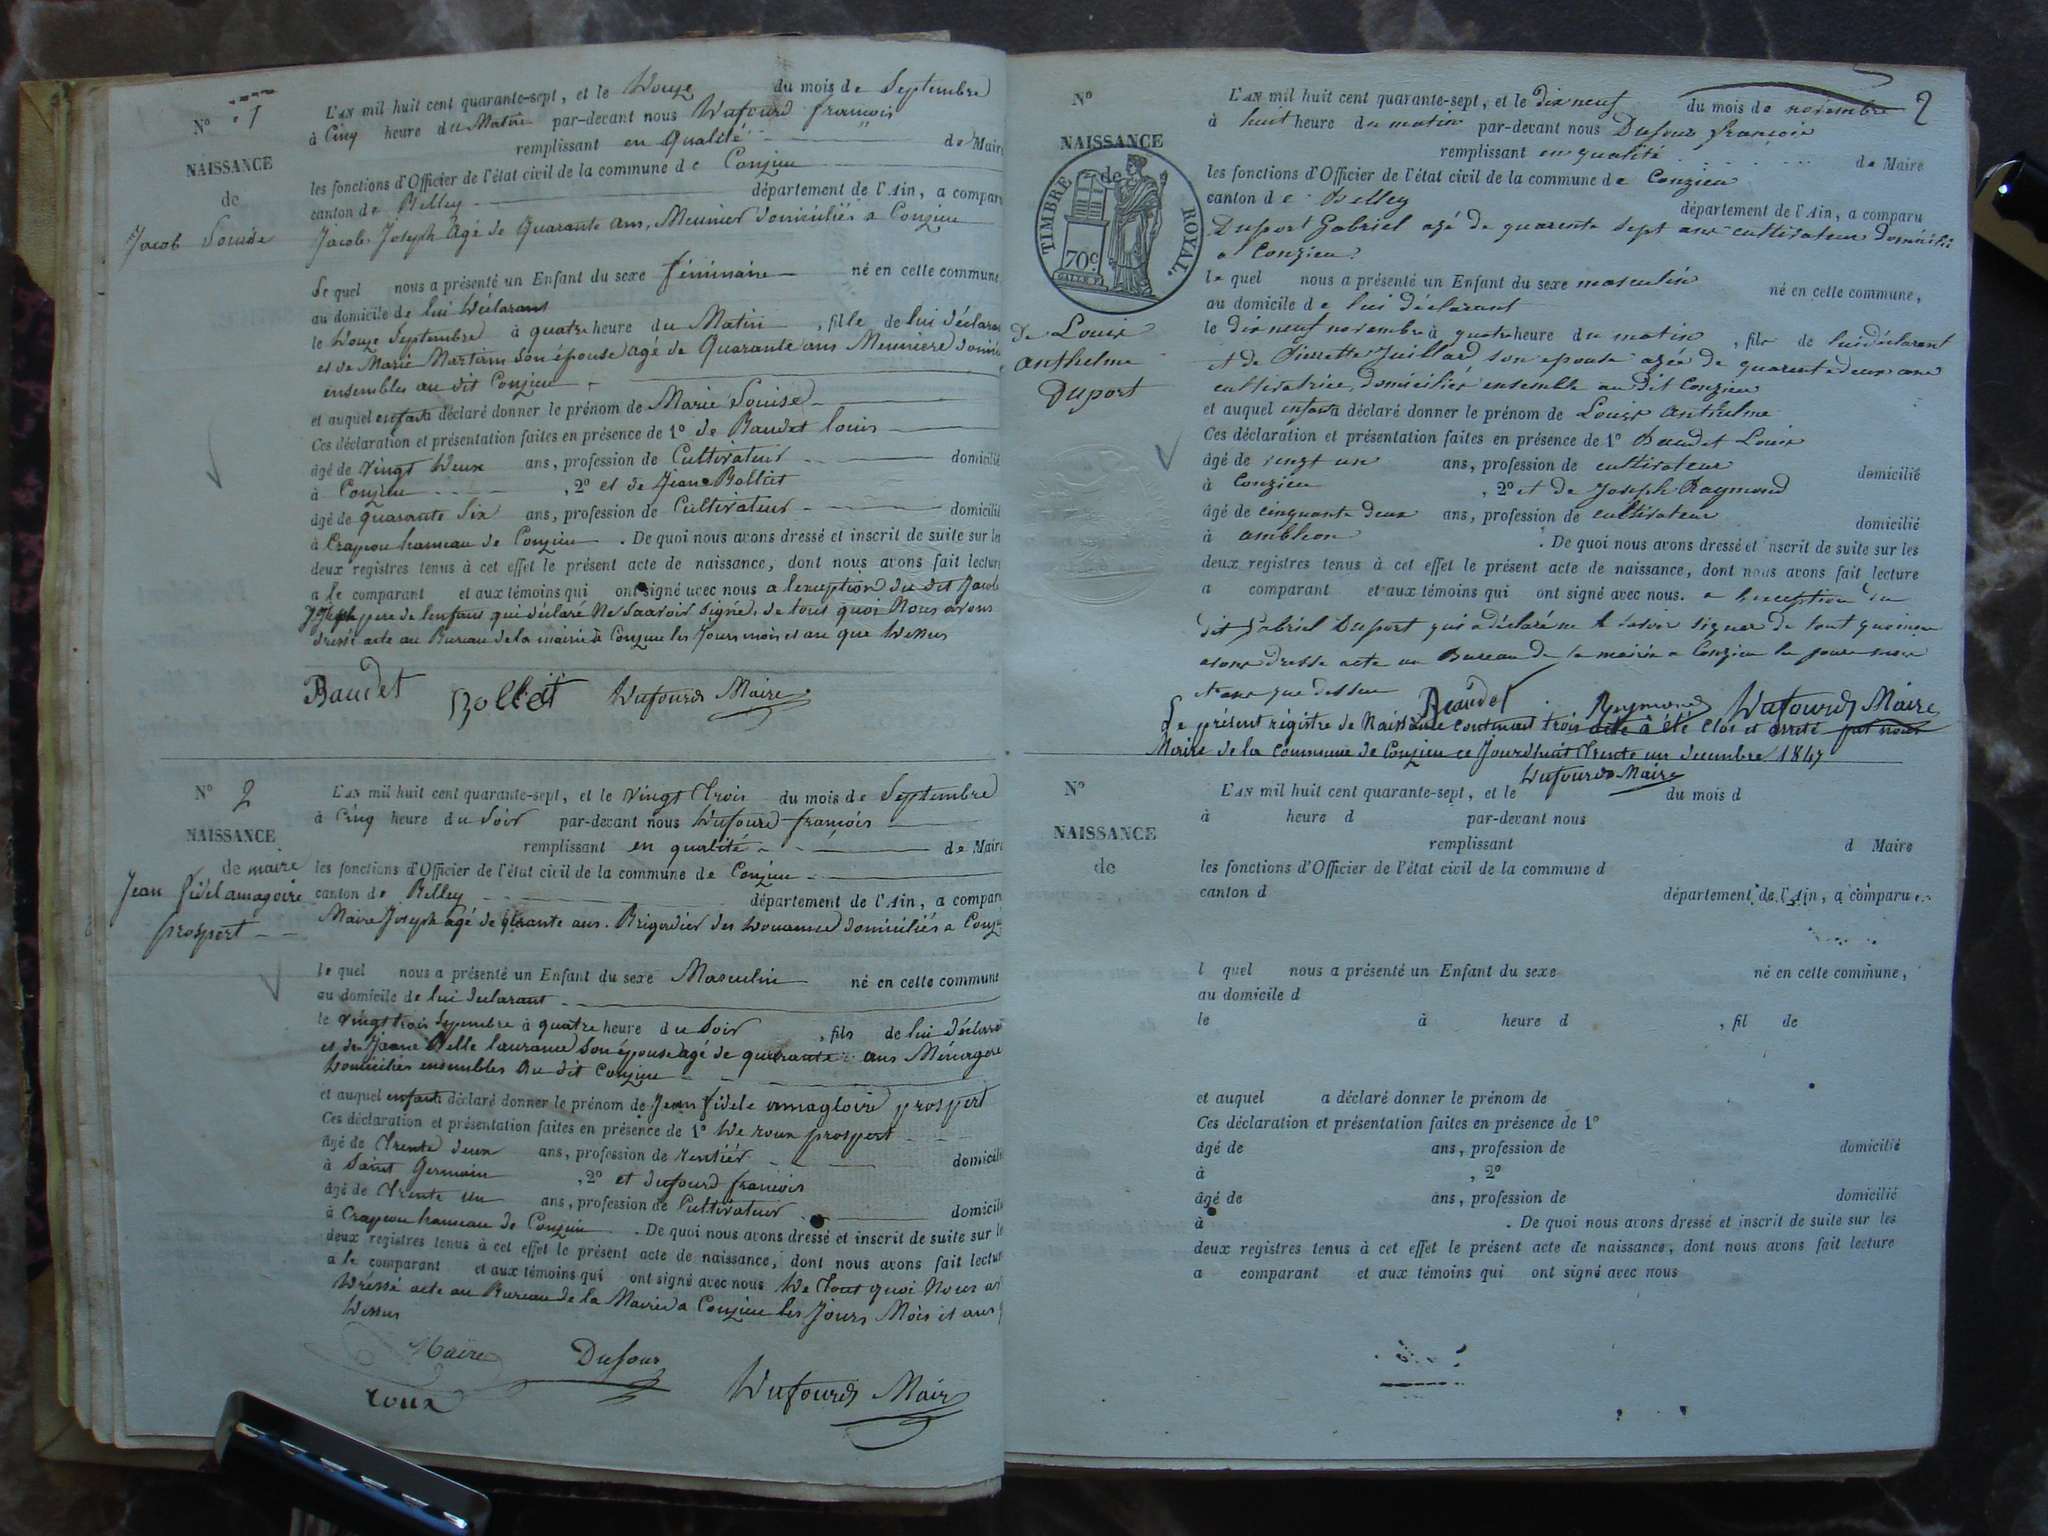 N° 1
NAISSANCE
de
Jacob Louise
L'AN mil huit cent quarante-sept, et le Douze du mois de Septembre
à Cinq heure du Matin par-devant nous Dufourd françois
remplissant en Qualité de Maire
les fonctions d'Officier de l'état civil de la commune de Conzieu
canton de Belley département de l'Ain, a compar
Jacob Joseph Agé de Quarante ans, Meunier domiciliés a Conzieu
Le quel nous a présenté un Enfant du sexe féminaire né en cette commune
au domicile de lui Déclarant
le Douze Septembre à quatre heure du Matin, fille de lui déclaran
et de Marie Martin son épouse agé de Quarante ans Meuniere domici
ensembles au dit Conzieu
et auquel enfant a déclaré donner le prénom de Marie Louise
Ces déclaration et présentation faites en présence de 1° de Baudet louis
âgé de vingt Deux ans, profession de Cultivateur domicilié
à Conzieu, 2° et de Jean Bolliet
âgé de quarante Six ans, profession de Cultivateur domicilié
à Crapeou hameau de Conzieu. De quoi nous avons dressé et inscrit de suite sur les
deux registres tenus à cet effet le présent acte de naissance, dont nous avons fait lecture
a le comparant et aux témoins qui ont signé avec nous a l'exception du dit Jacob
Joseph pere de lenfant qui déclaré Ne Saavoir Signé, de tout quoi Nous avons
dressé acte au Bureau de la mairie à Conzieu les Jours mois et an que Dessus
Baudet Bolliet Dufourd Maire
N° 2
NAISSANCE
de maire
Jean fidel amagoire
prospert
L'AN mil huit cent quarante-sept, et le vingt trois du mois de Septembre
à Cinq heure du Soir par-devant nous Dufourd françois
remplissant en qualité de Maire
les fonctions d'Officier de l'état civil de la commune de Conzieu
canton de Belley département de l'Ain, a compar
Maire Joseph agé de quarante ans. Brigadier des Douanne domiciliés a Conz
le quel nous a présenté un Enfant du sexe Masculin né en cette commune
au domicile de lui déclarant
le vingt trois Septembre à quatre heure du Soir, fils de lui déclara
et de Jeanne Belle laurance Son épouse agé de quarante ans Ménagere
Domiciliés ensembles Au dit Conzieu
et auquel enfant a déclaré donner le prénom de Jean fidele amagloire prospert
Ces déclaration et présentation faites en présence de 1° De roux prospert
âgé de trente deux ans, profession de rentiér domicili
à Saint Germain, 2° et dufourd francois
âgé de trente un ans, profession de Cultivateur domicili
à Crapeou hameau de Conzieu. De quoi nous avons dressé et inscrit de suite sur le
deux registres tenus à cet effet le présent acte de naissance, dont nous avons fait lectur
a le comparant et aux témoins qui ont signé avec nous De tout quoi Nous av
Dréssé acte au Bureau de la Mairie a Conzieu les Jours Mois et ans
Dessus
Maire Dufour
roux Dufourd Maire
2
N°
NAISSANCE
de
TIMBRE ROYAL.
70c
de Louis
anthelme
Duport
L'AN mil huit cent quarante-sept, et le dix neuf du mois de novembre
à huit heure du matin par-devant nous Dufour françois
remplissant en qualité de Maire
les fonctions d'Officier de l'état civil de la commune de Conzieu
canton de Belley département de l'Ain, a comparu
Duport Gabriel agé de quarente sept ans cultivateur domicilié
a Conzieu
le quel nous a présenté un Enfant du sexe masculin né en cette commune,
au domicile de lui déclarant
le dix neuf novembre à quatre heure du matin, fils de lui déclarant
et de Pierrette Juillard, son epouse agée de quarente deux ans
cultivatrice, domiciliés ensemble au dit Conzieu
et auquel enfant a déclaré donner le prénom de Louis anthelme
Ces déclaration et présentation faites en présence de 1° Baudet Louis
âgé de vingt un ans, profession de cultivateur domicilié
à Conzieu, 2° et de Joseph Raymond
âgé de cinquante deux ans, profession de cultivateur domicilié
à ambléon. De quoi nous avons dressé et inscrit de suite sur les
deux registres tenus à cet effet le présent acte de naissance, dont nous avons fait lecture
a comparant et aux témoins qui ont signé avec nous. a lexception du
dit Gabriel Duport qui a déclaré ne le savoir signer de tout quoi nous
avons dressé acte au Bureau de la mairie a Conzieu les jours mois
et ans que dessus Baudet Raymond Dufourd Maire
Le présent régistre de Naissance contenant trois acte à été Clos et arreté par nous
Maire de la Commune de Conzieu ce Jourdhuit trente un decembre 1847
Dufourd Maire
N°
NAISSANCE
de
L'AN mil huit cent quarante-sept, et le du mois d
à heure d par-devant nous
remplissant d Maire
les fonctions d'Officier de l'état civil de la commune d
canton d département de l'Ain, a comparu
l quel nous a présenté un Enfant du sexe né en cette commune,
au domicile d
le à heure d, fil de
et auquel a déclaré donner le prénom de
Ces déclaration et présentation faites en présence de 1°
âgé de ans, profession de domicilié
à, 2°
âgé de ans, profession de domicilié
à. De quoi nous avons dressé et inscrit de suite sur les
deux registres tenus à cet effet le présent acte de naissance, dont nous avons fait lecture
a comparant et aux témoins qui ont signé avec nous